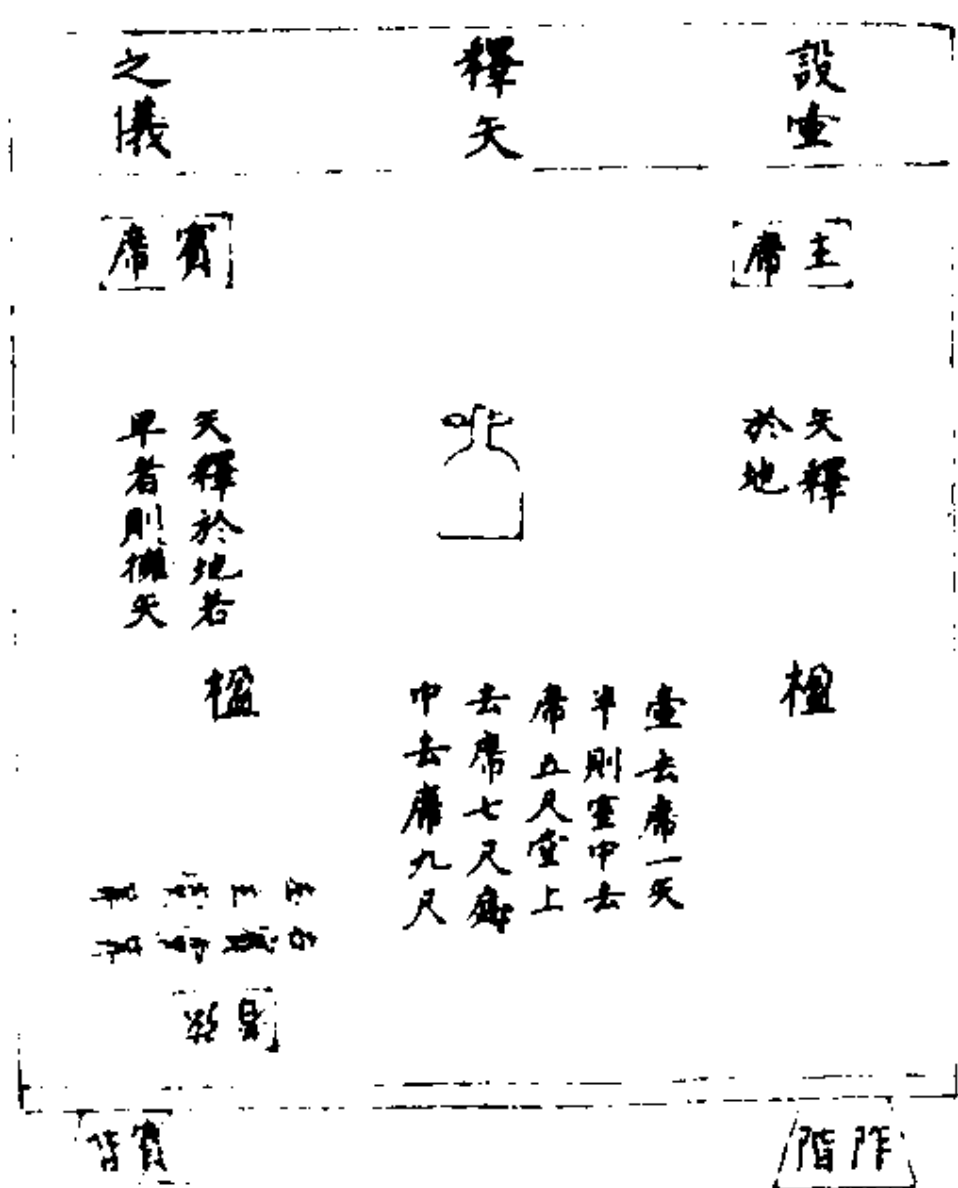 設壺
釋矢
之儀
主席
賓席
矢釋
於地
矢釋於地若
卑者則擁矢
楹
楹
壺去席一矢
半則室中去
席五尺堂上
去席七尺庭
中去席九尺
阼階
賓階